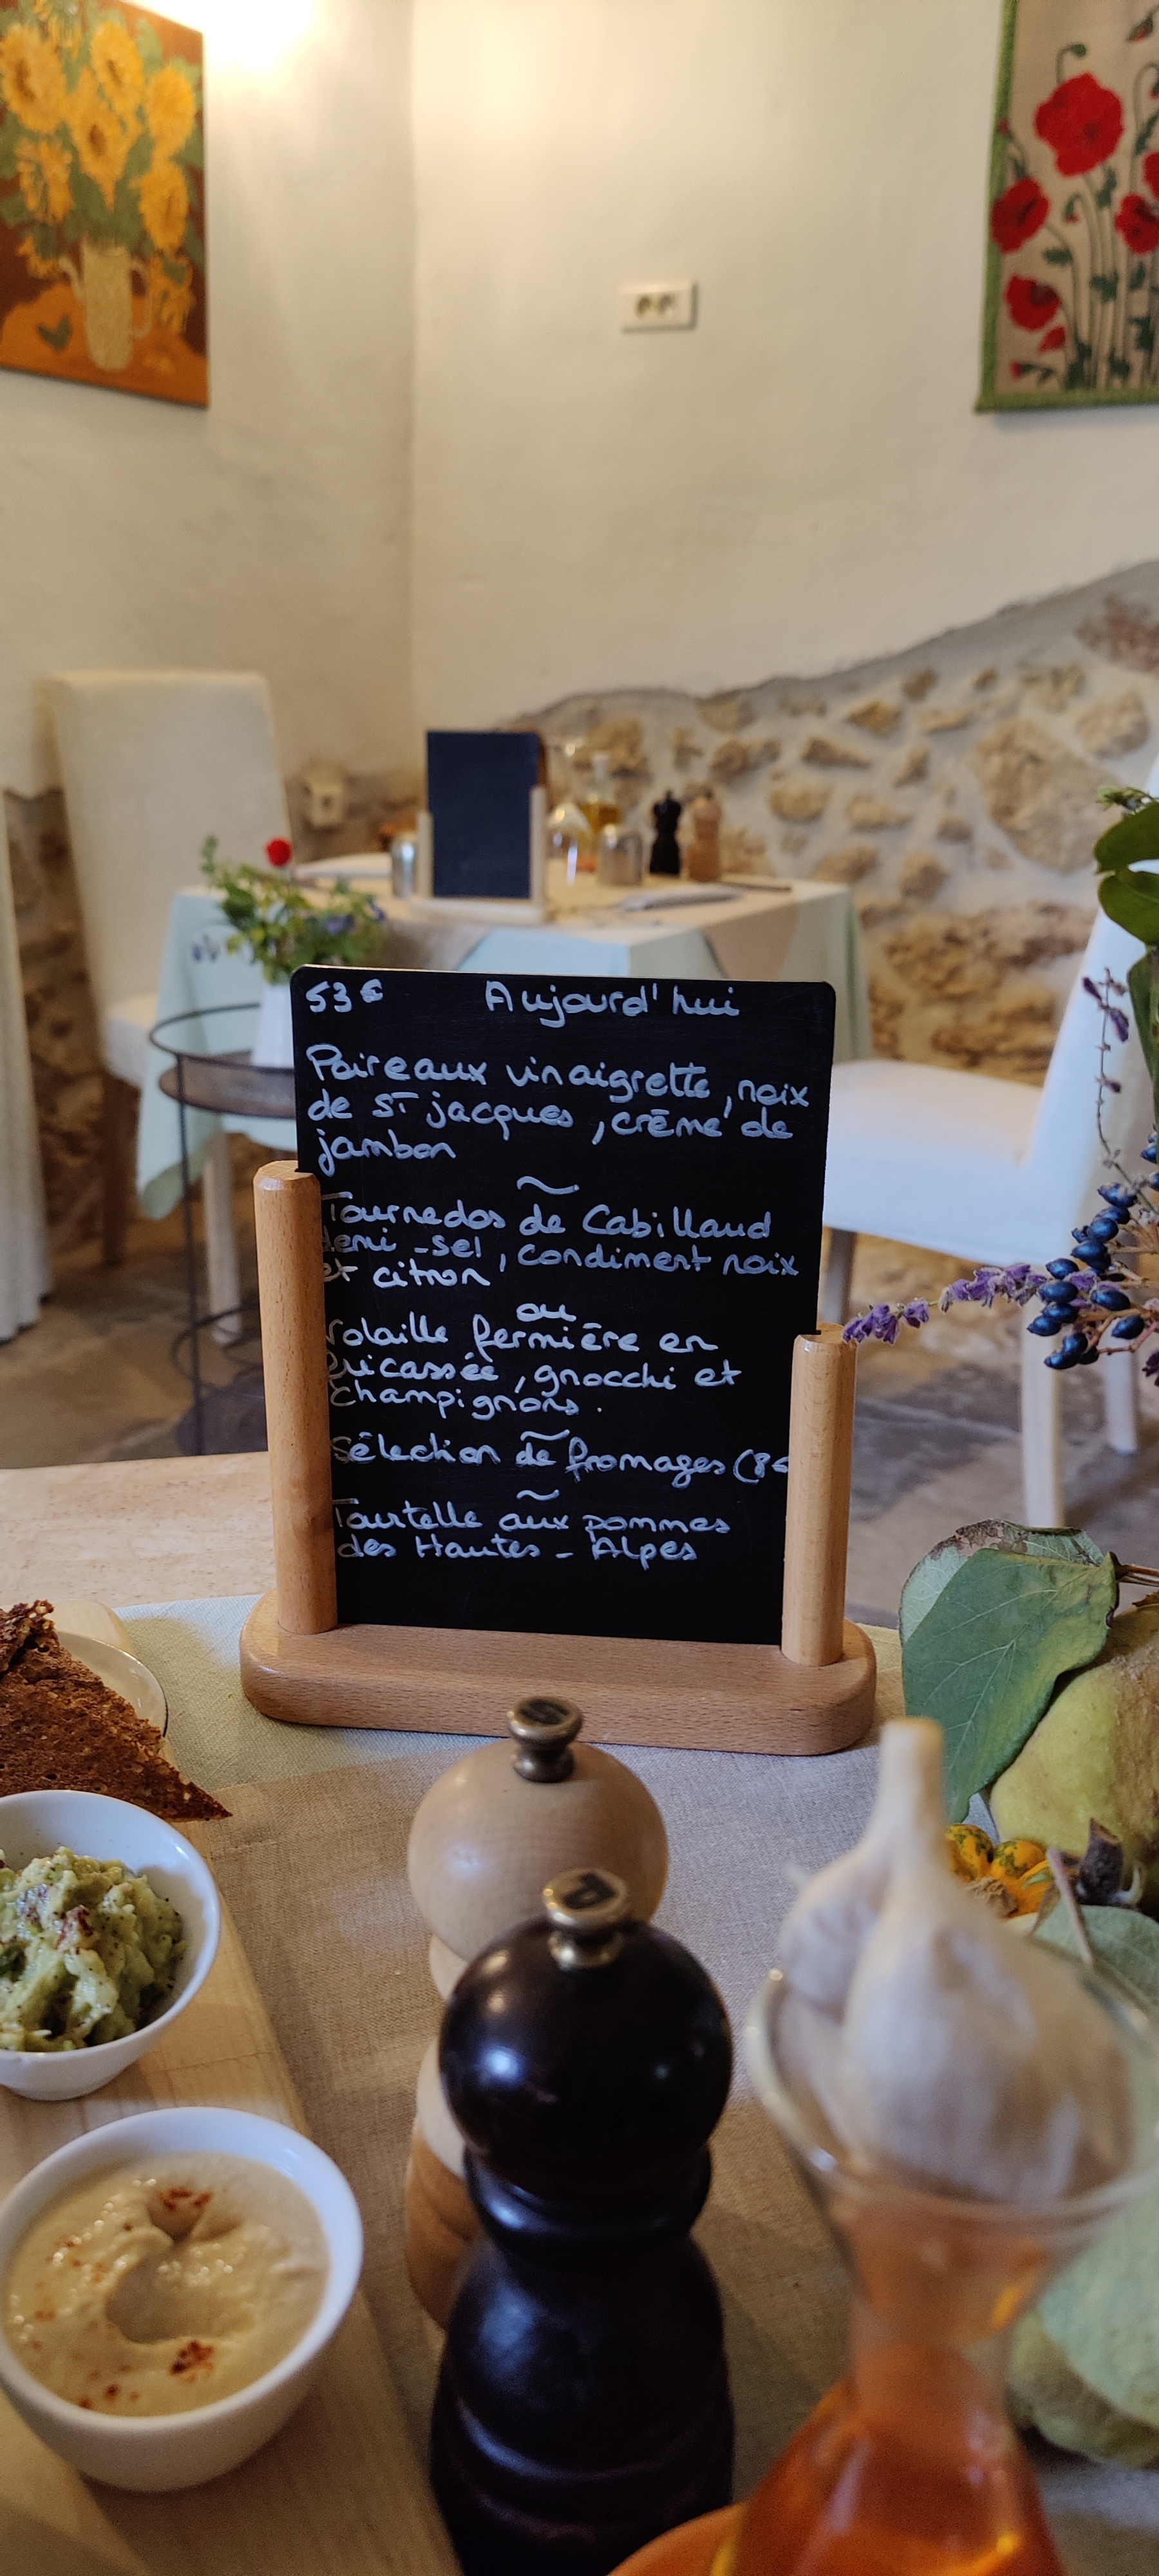 53€ Aujourd'hui
Poireaux vinaigrette, noix
de St jacques, crème de
jambon
~
Tournedos de Cabillaud
demi-sel, condiment noix
et citron
ou
Volaille fermière en
fricassée, gnocchi et
champignons.
~
Sélection de fromages (8€
~
Tourtelle aux pommes
des Hautes-Alpes
S
P